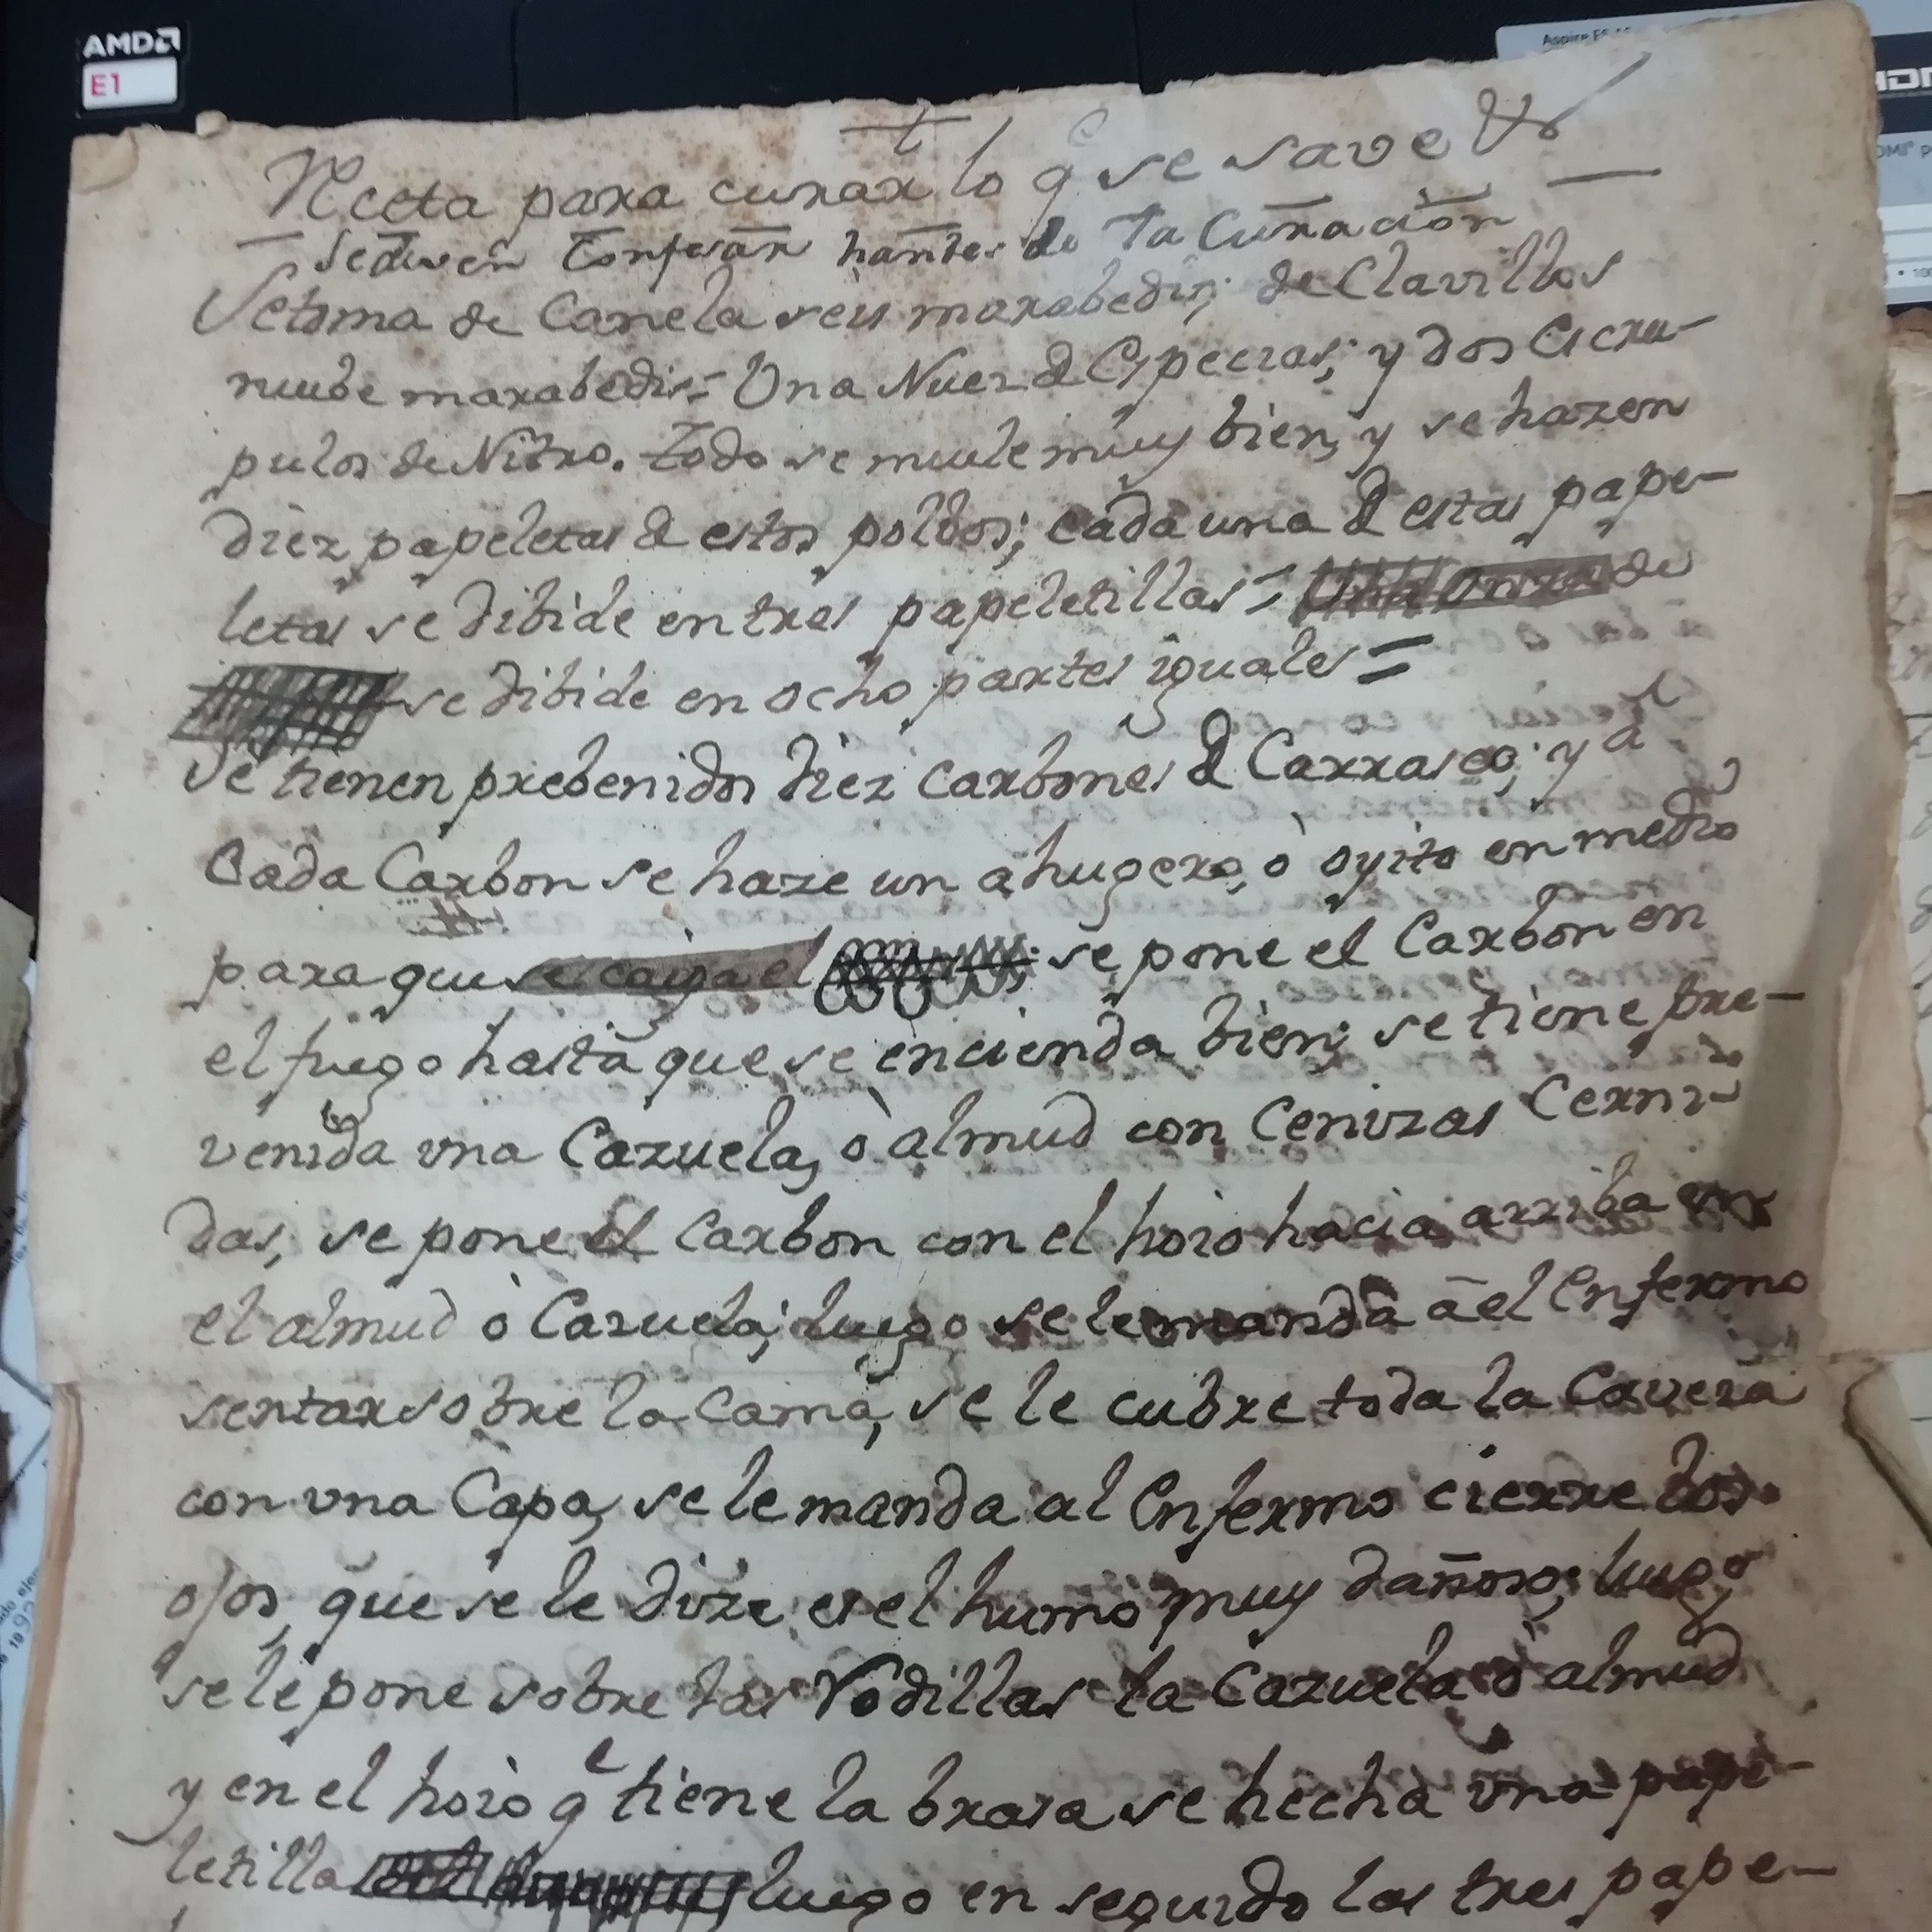 AMD
E1
Aspire E5
HDMI
t
Receta para curar lo q.e se save
se deven Confesar hantes de la Curacion
Setoma de Canela seis marabedis; de Clavillos
nuebe marabedis= Una Nuez de Especias; y dos Escru-
pulos de Nitro. todo se muele muy bien, y se hazen
diez papeletas de estos polbos; cada una de estas pape-
letas se dibide en tres papeletillas= Onza de
se dibide en ocho partes iguales=
Se tienen prebenidos diez carbones de Carrasco; y a
Cada Carbon se haze un ahugero, ò oyito en medio
para que se caiga el se pone el Carbon en
el fuego hasta que se encienda bien; se tiene pre-
venida vna Cazuela, ò almud con Cenizas Cerni-
das, se pone el Carbon con el hoio hacia arriba en
el almud ò Cazuela; luego se le manda a el Enfermo
sentar sobre la Cama, se le cubre toda la Caveza
con vna Capa, se le manda al Enfermo cierre los
ojos, que se le dize es el humo muy dañoso; luego
se le pone sobre las Rodillas la Cazuela ò almud
y en el hoio q.e tiene la brasa se hecha vna pape-
letilla luego en seguido las tres pape-